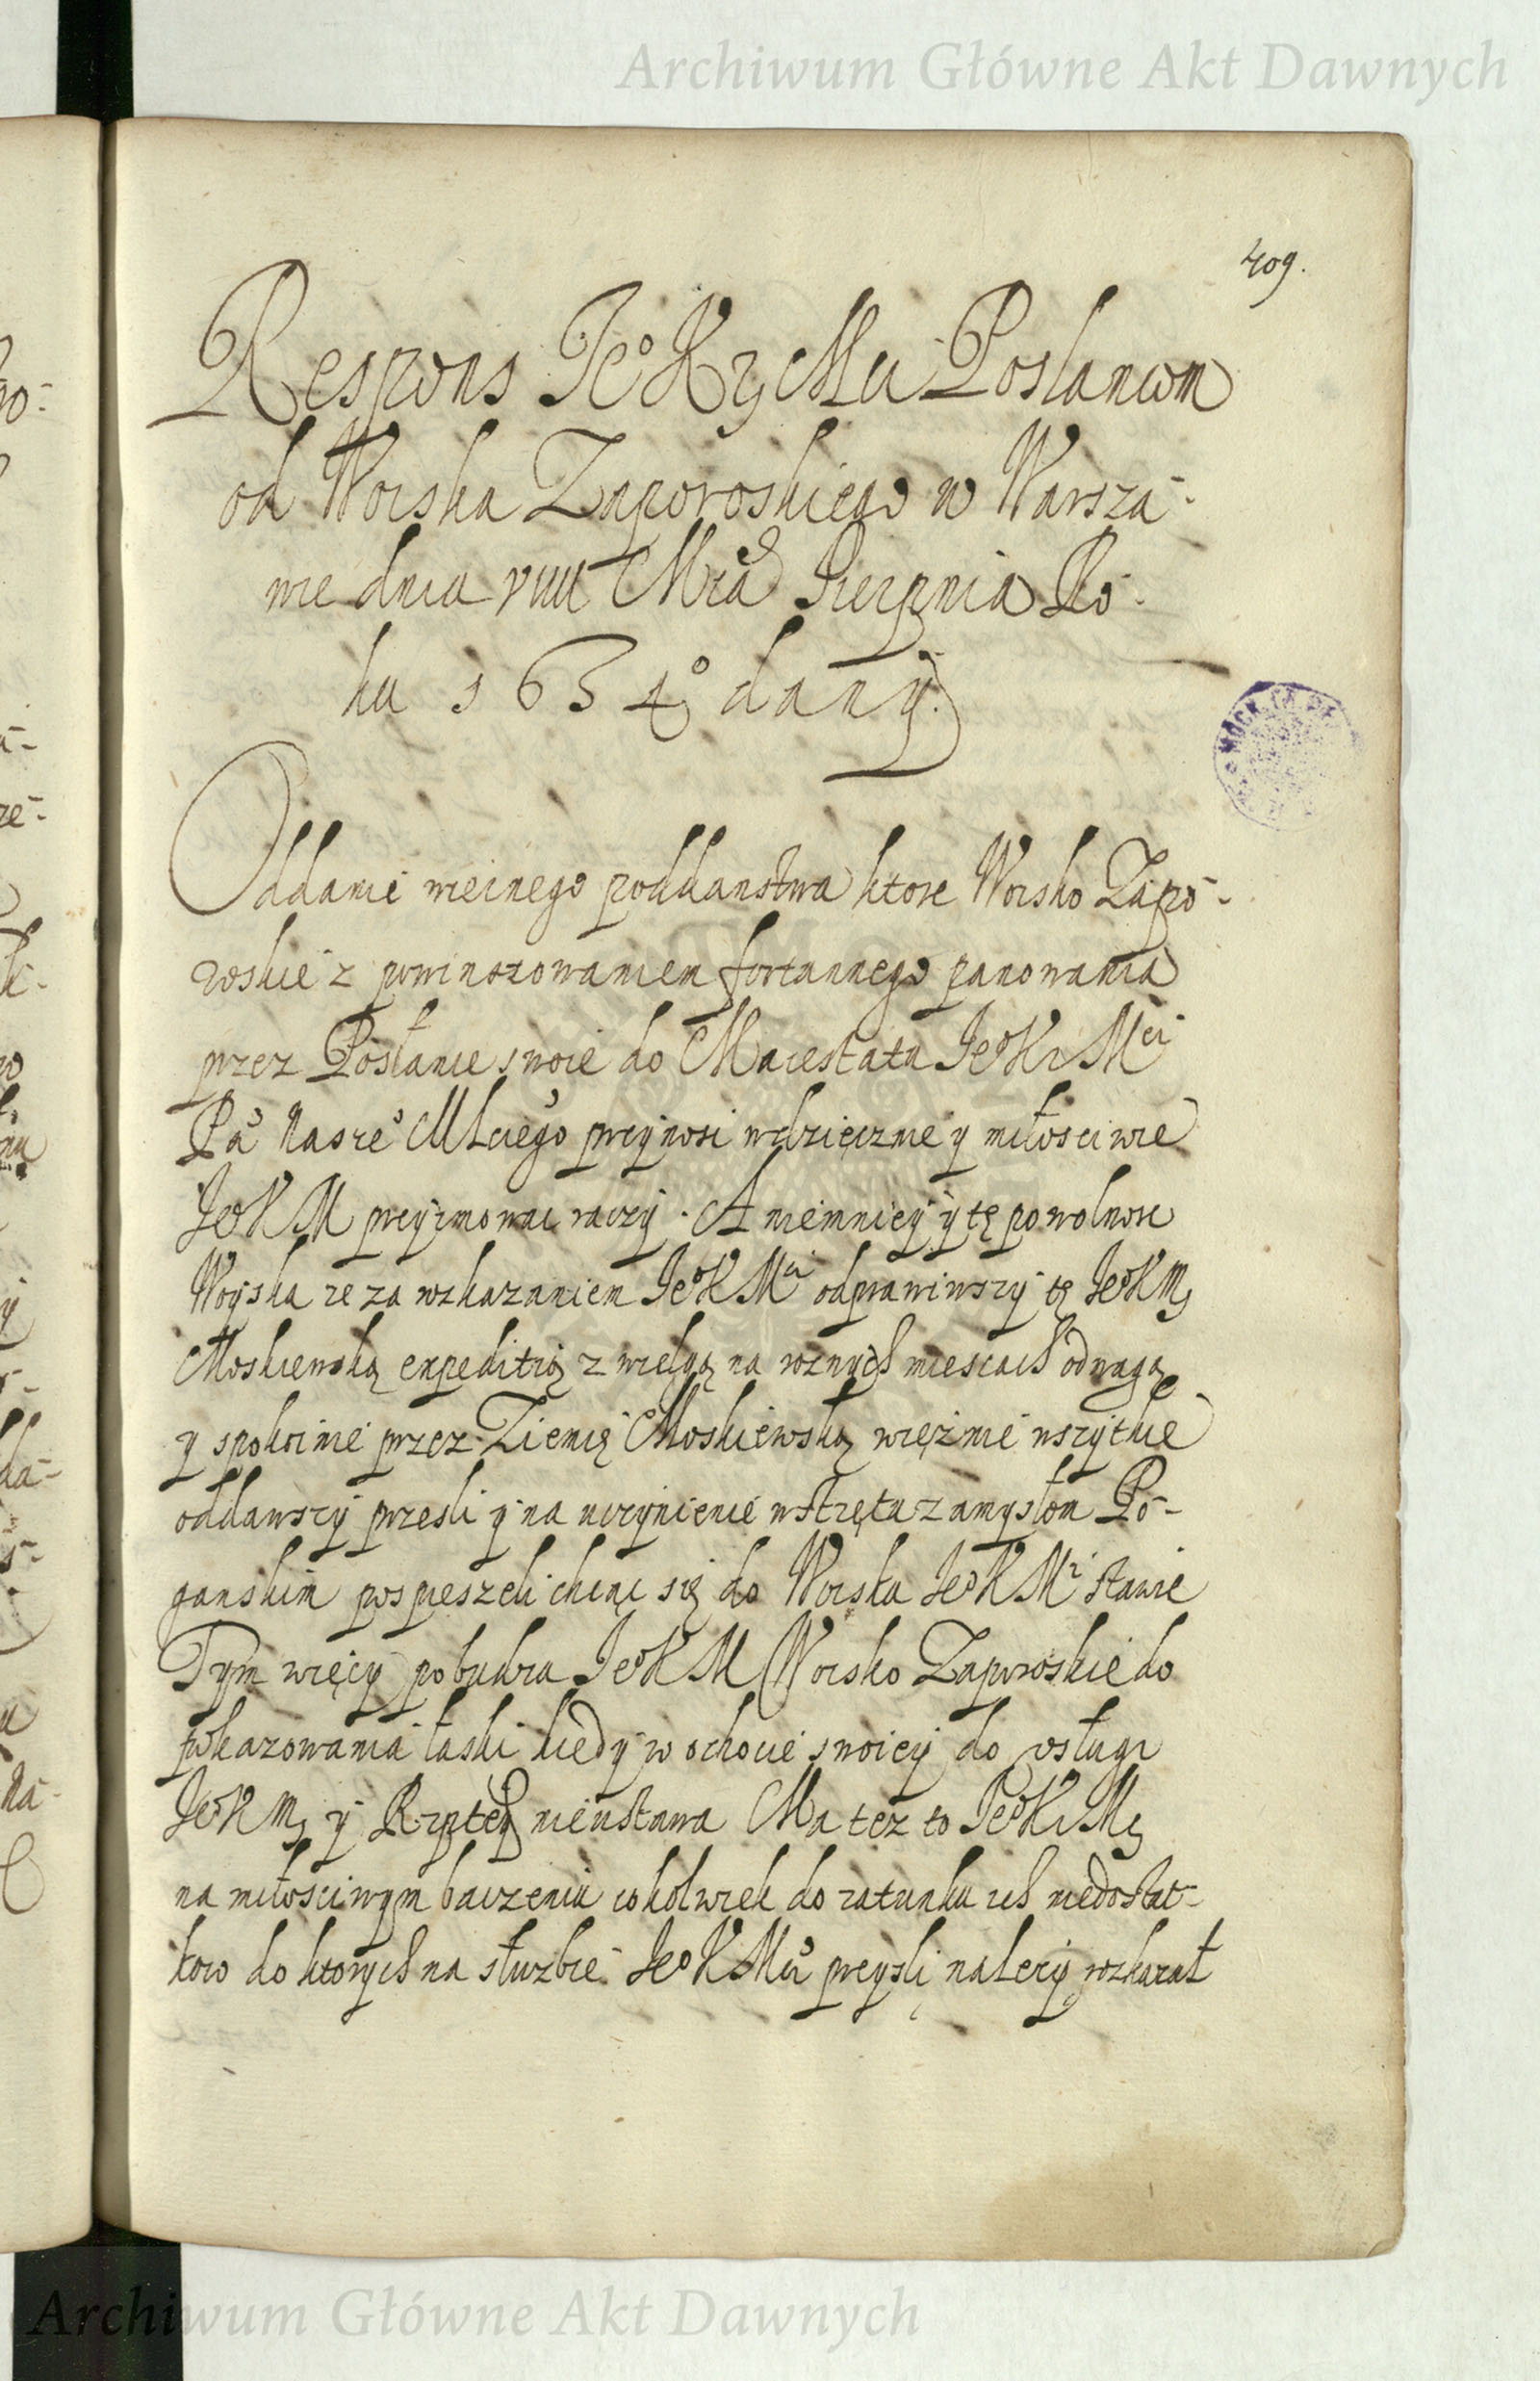 Archiwum Główne Akt Dawnych
409.
Respons Je° K Jy Mci Posłancom
od Woiska Zaporoskiego w Warsza-
wie dnia VIIII Mca Sierpnia Ro-
ku 1634° dany.
Oddanie wiecznego poddanstwa ktore Woisko Zapo-
roskie z powinszowaniem fortunnego panowania
przez Posłance swoie do Maiestatu Je° K Mci
Pa° Nasze° MLciego przynosi wdzięcznie y miłosciwie
Je° K M przyimowac raczy. A niemniey y tę powolnosc
Woyska ze za wskazaniem Je° K Mci odprawiwszy tę Je° K M
Moskiewską expeditią z wielgą na roznych miescach odwagą
y spokoinie przez Ziemię Moskiewską więznie wszytkie
oddawszy przesli y na uczynienie wstrętu zamysłom Po-
ganskim pospieszeli chcąc się do Woiska Je° K Mci stawic
Tym więcy pobudza Je° K M Woisko Zaporoskie do
pokazowania łaski kiedy w ochocie swoiey do usługi
Je° K M y Rzptey nieustawa Ma tez to Je° K M
na miłosciwym baczeniu cokolwiek do ratunku ich niedostat-
kow do ktorych na słuzbie Je° K Mci przysli nalezy rozkazał
Archiwum Główne Akt Dawnych